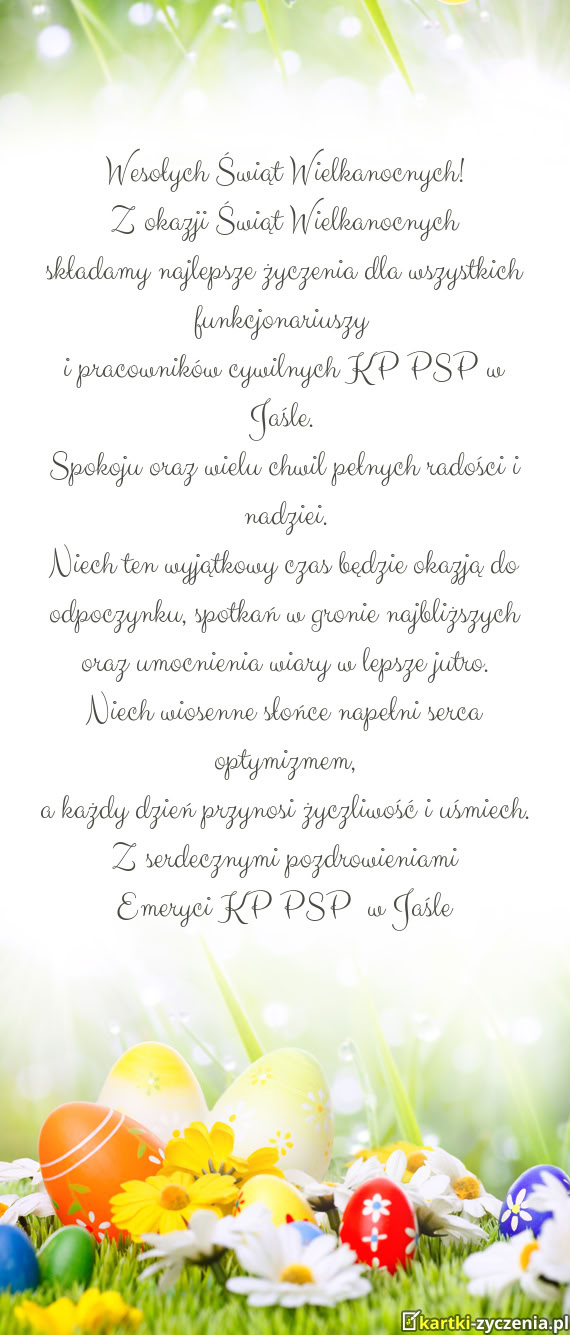 Wesołych Świąt Wielkanocnych!
Z okazji Świąt Wielkanocnych
składamy najlepsze życzenia dla wszystkich
funkcjonariuszy
i pracowników cywilnych KP PSP w
Jaśle.
Spokoju oraz wielu chwil pełnych radości i
nadziei.
Niech ten wyjątkowy czas będzie okazją do
odpoczynku, spotkań w gronie najbliższych
oraz umocnienia wiary w lepsze jutro.
Niech wiosenne słońce napełni serca
optymizmem,
a każdy dzień przynosi życzliwość i uśmiech.
Z serdecznymi pozdrowieniami
Emeryci KP PSP w Jaśle
kartki-zyczenia.pl